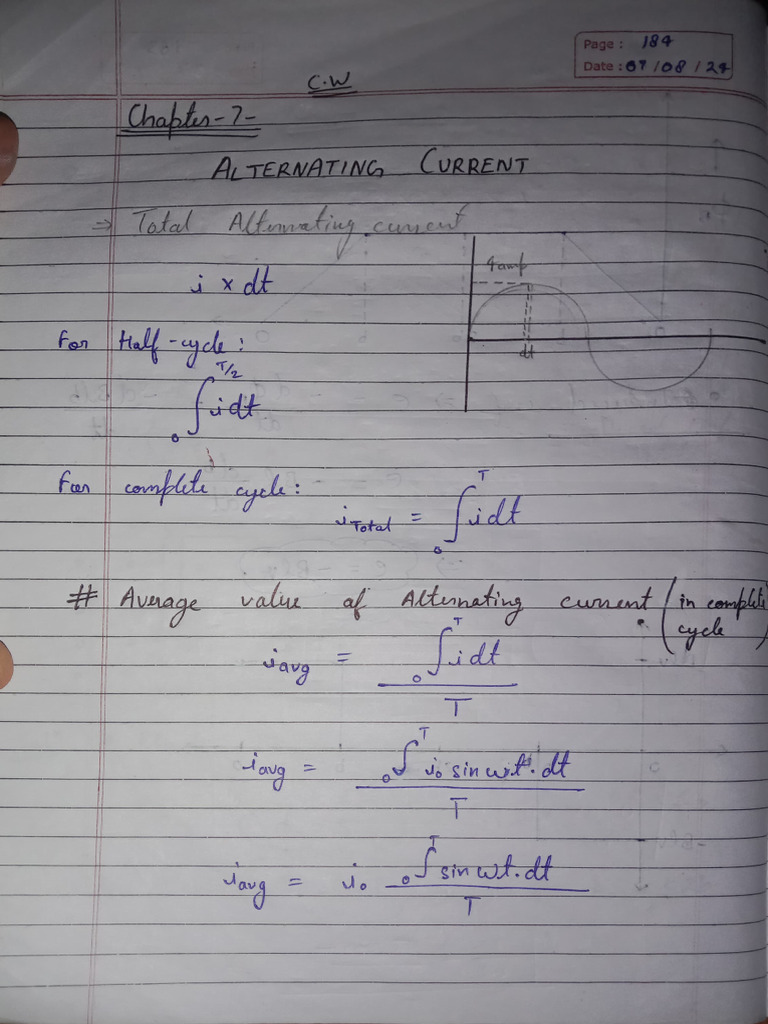 Page : 184
Date : 07/08/24
C.W
Chapter-7-
ALTERNATING CURRENT
⇒ Total Alternating current
i × dt
4amp
dt
For Half-cycle:
₀∫^T/2 i dt
For complete cycle:
i_Total = ₀∫^T i dt
# Average value of Alternating current (in complete cycle)
i_avg = ₀∫^T i dt / T
i_avg = ₀∫^T i₀ sin ωt. dt / T
i_avg = i₀ ₀∫^T sin ωt. dt / T